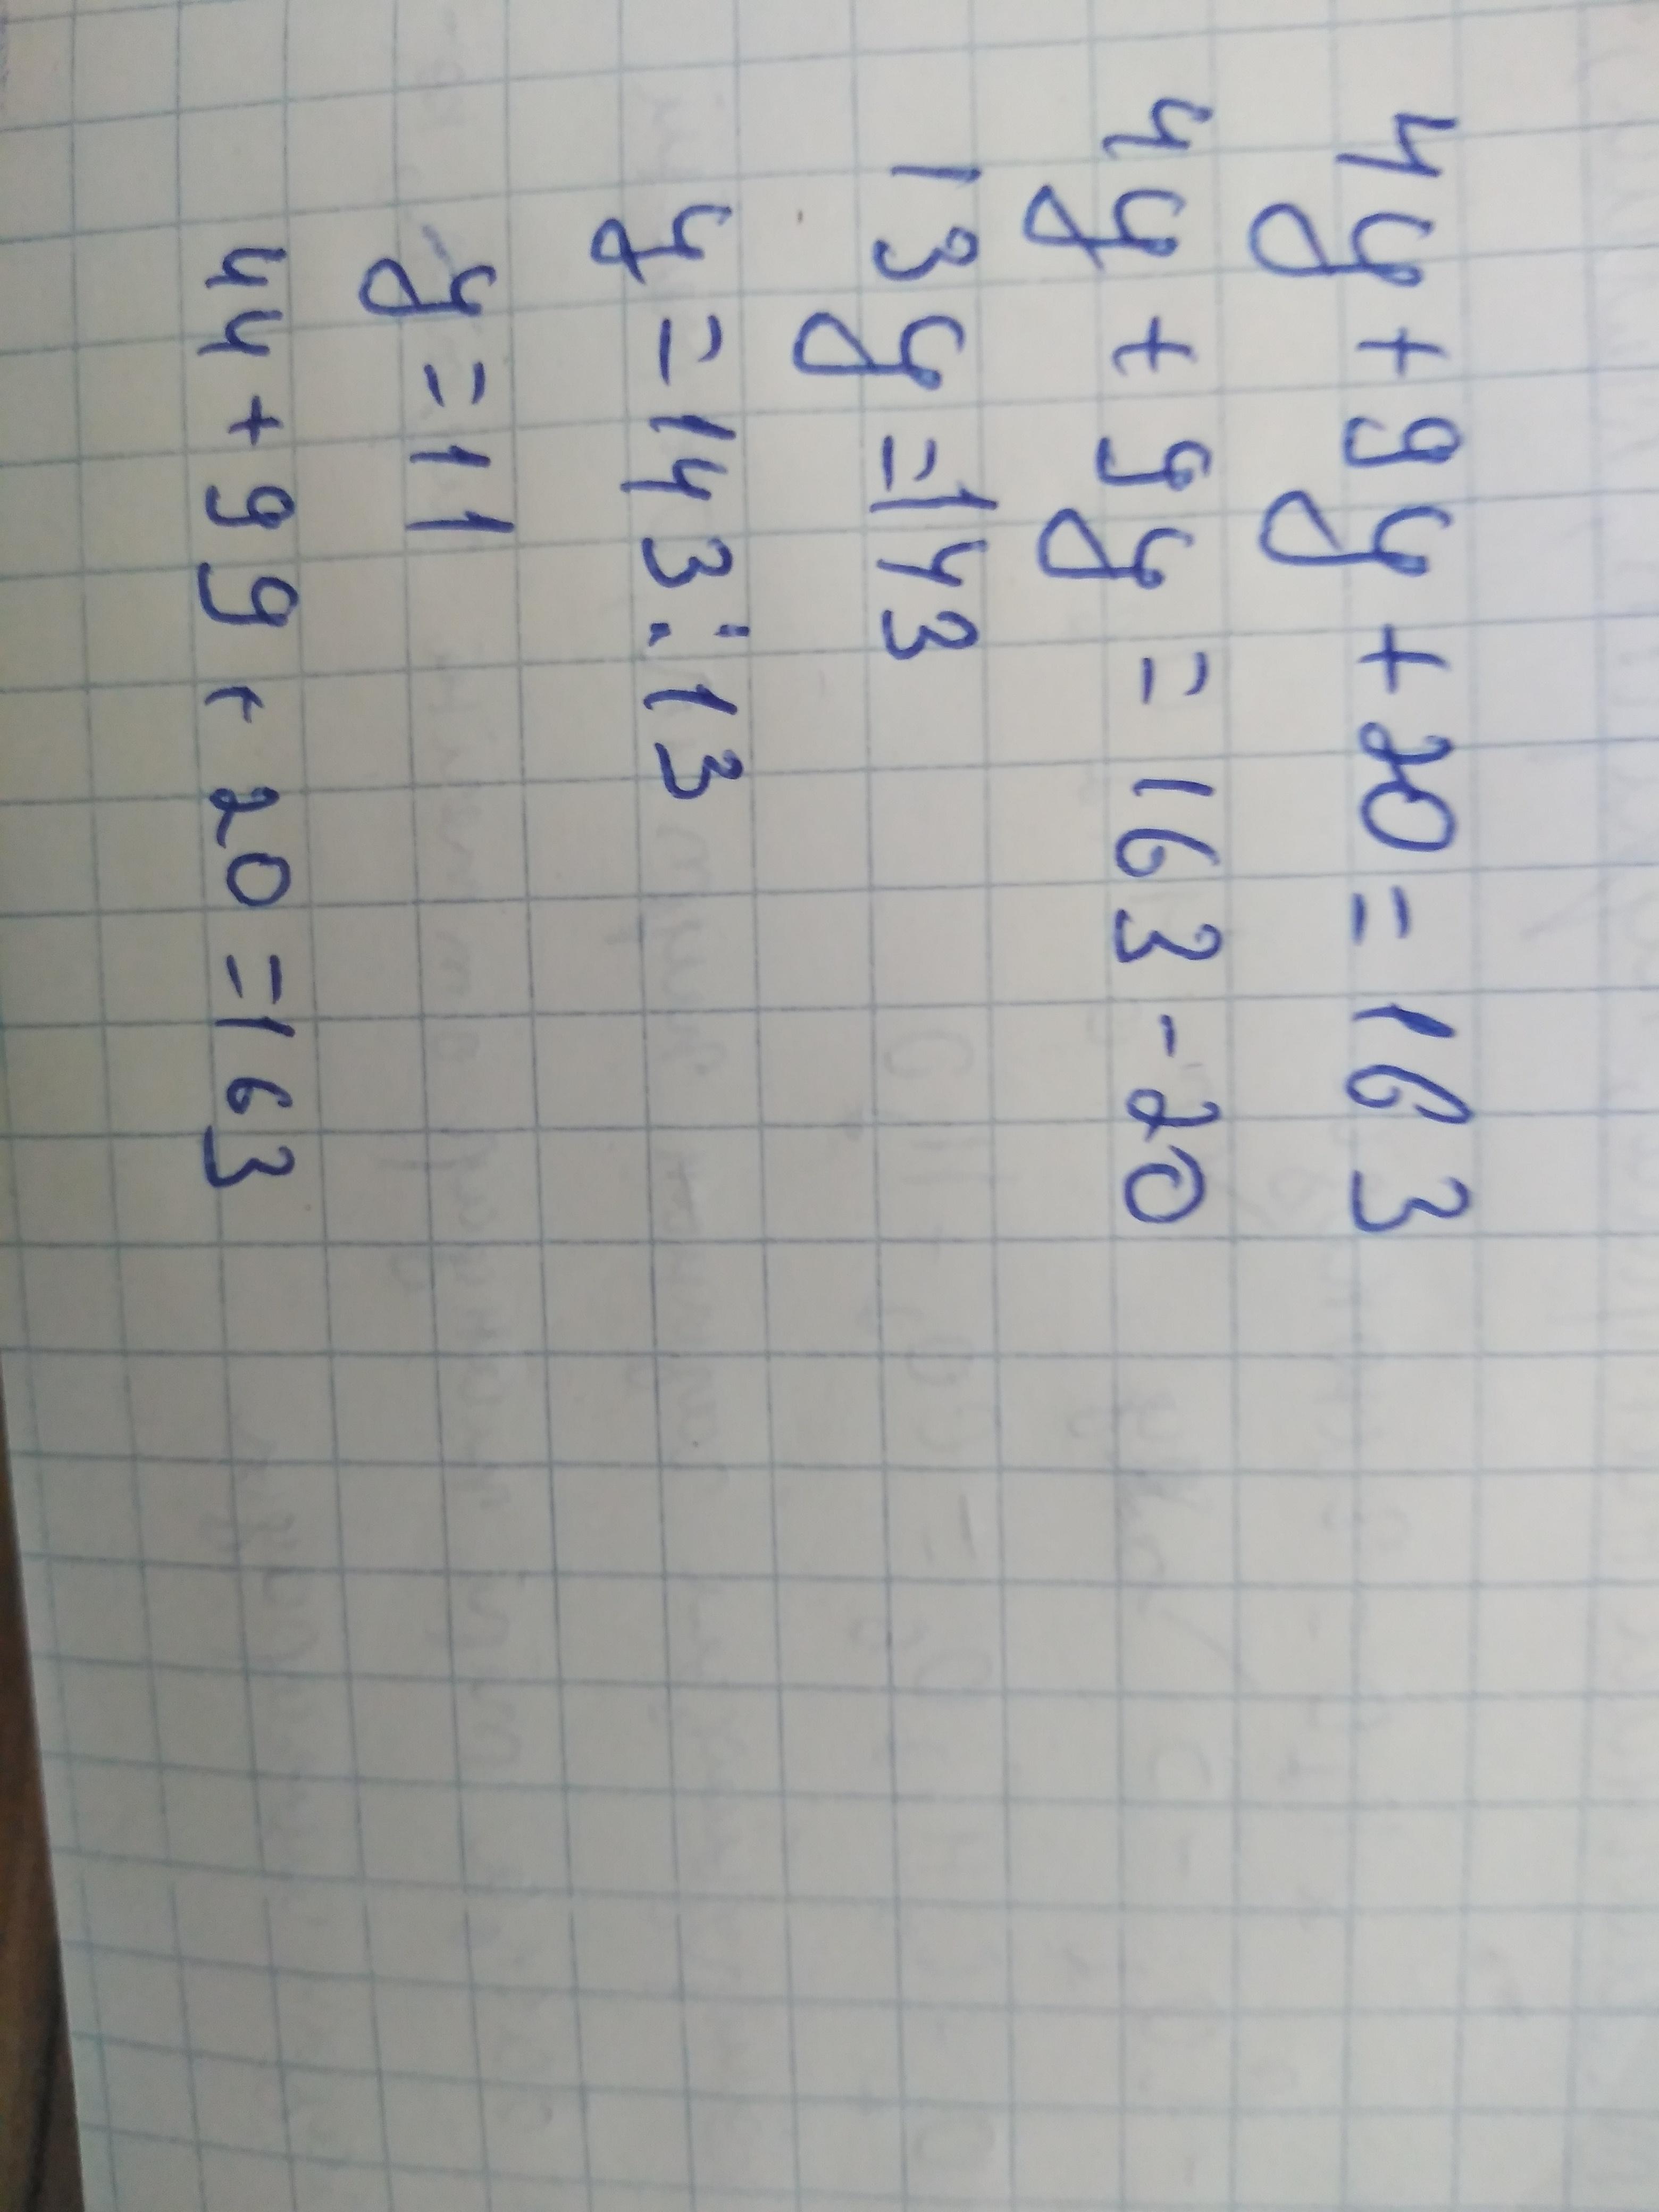 4y + 9y + 20 = 163
4y + 9y = 163 - 20
13y = 143
y = 143 : 13
y = 11
44 + 99 + 20 = 163